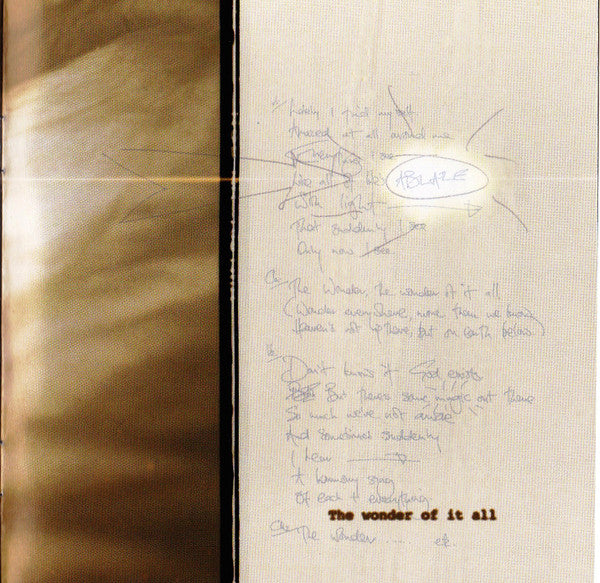 1/ Lately I find myself
Amazed at all around me
Everything I see
Like all of life's ABLAZE
with light
That suddenly I see
Only now I see
Ch/ The Wonder, the wonder of it all
(Wonder everywhere, more than we know
Heaven's not up there, but on earth below)
Don't know if God exists
But there's some 'magic' out there
So much we're not aware
And sometimes suddenly
I hear
A harmony sing
Of each + everything.
The wonder of it all
Ch/ The Wonder ..... etc.